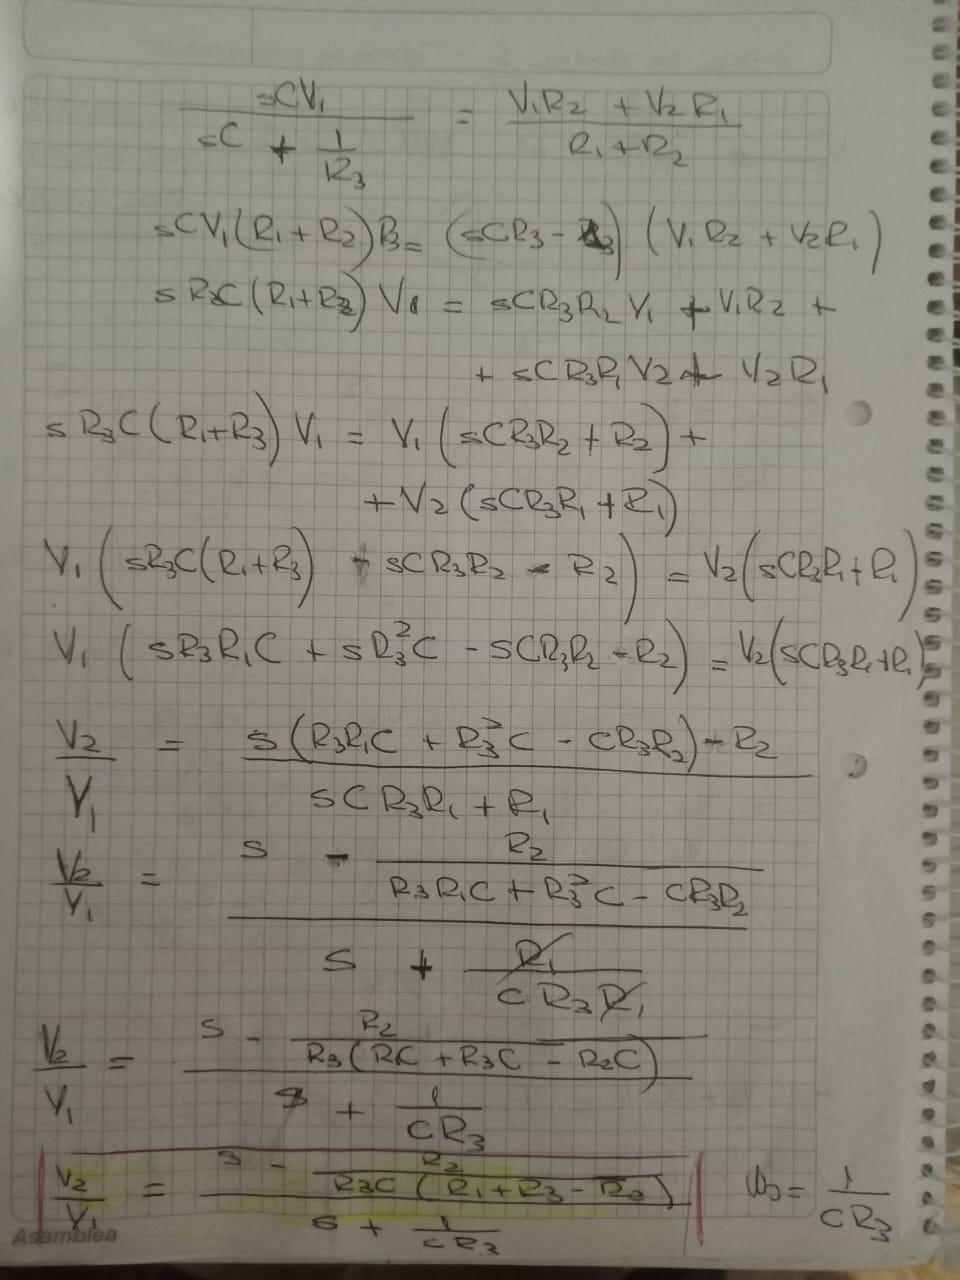 sCV₁ / (sC + 1/R₃) = (V₁R₂ + V₂R₁) / (R₁ + R₂)
sCV₁(R₁ + R₂)R₃ = (sCR₃ - ) (V₁R₂ + V₂R₁)
sR₃C(R₁+R₂) V₁ = sCR₃R₂V₁ + V₁R₂ +
+ sCR₃R₁V₂ + V₂R₁
sR₃C(R₁+R₃) V₁ = V₁(sCR₃R₂ + R₂) +
+ V₂(sCR₃R₁ + R₁)
V₁(sR₃C(R₁+R₃) - sCR₃R₂ - R₂) = V₂(sCR₃R₁ + R₁)
V₁(sR₃R₁C + sR₃²C - sCR₃R₂ - R₂) = V₂(sCR₃R₁+R₁)
V₂/V₁ = (s(R₃R₁C + R₃²C - CR₃R₂) - R₂) / (sCR₃R₁ + R₁)
V₂/V₁ = (s - R₂/(R₃R₁C + R₃²C - CR₃R₂)) / (s + R₁/(CR₃R₁))
V₂/V₁ = (s - R₂/(R₃(R₁C + R₃C - R₂C))) / (s + 1/(CR₃))
V₂/V₁ = (s - R₂/(R₃C(R₁+R₃-R₂))) / (s + 1/(CR₃)) ω₀ = 1/(CR₃)
Asamblea